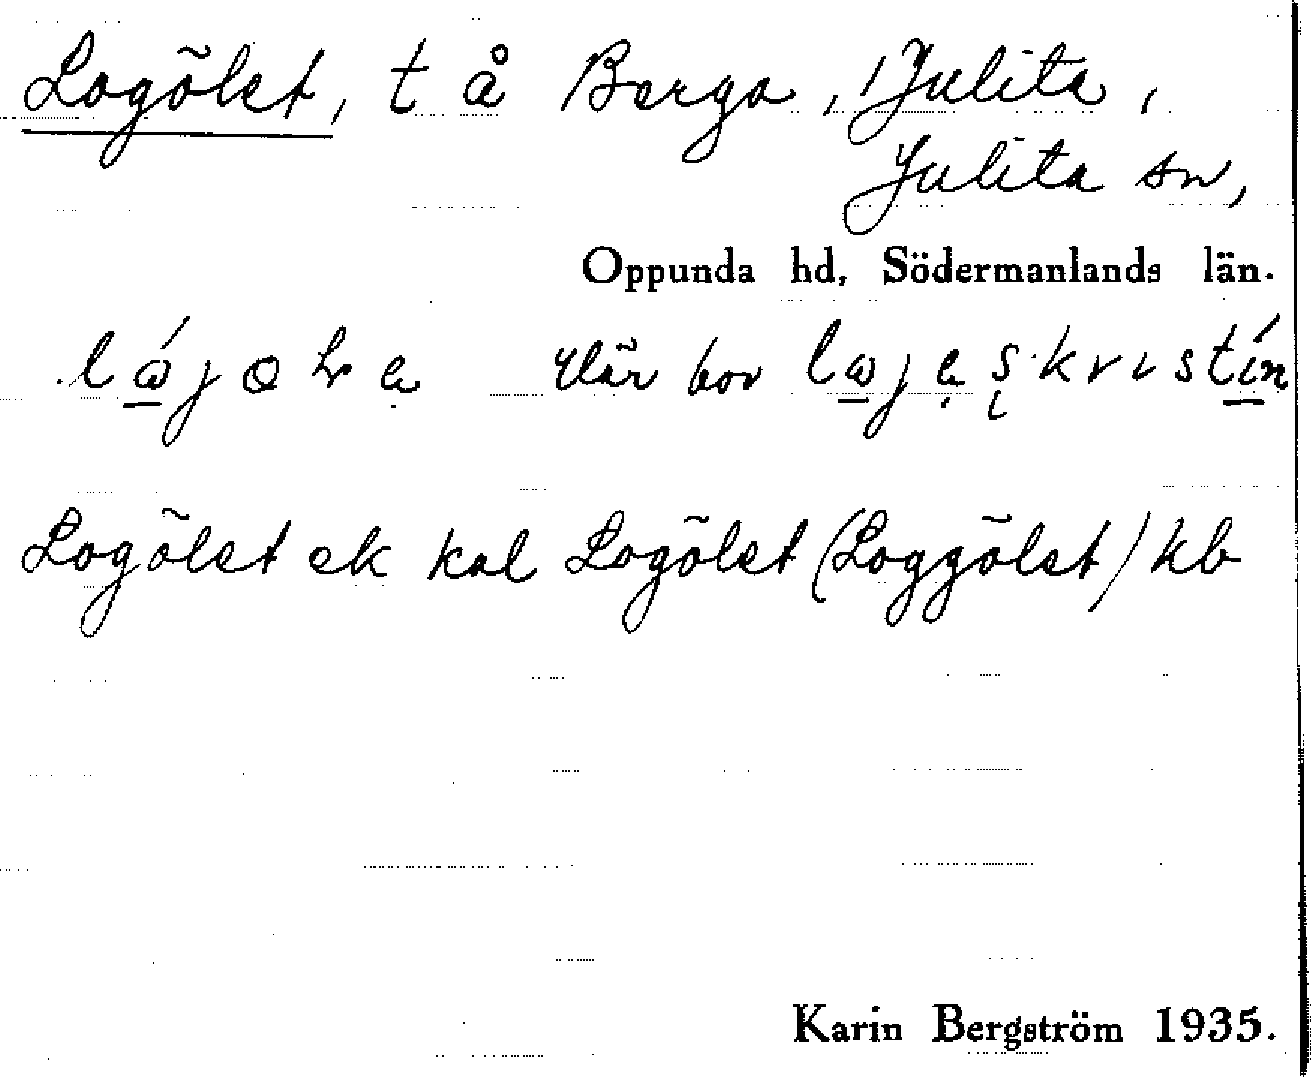 Logölet, t å Berga, Julita,
Julita sn,
Oppunda hd, Södermanlands län.
Där bor
Logölet ek kal Logölet (Loggölet) kb
Karin Bergström 1935.